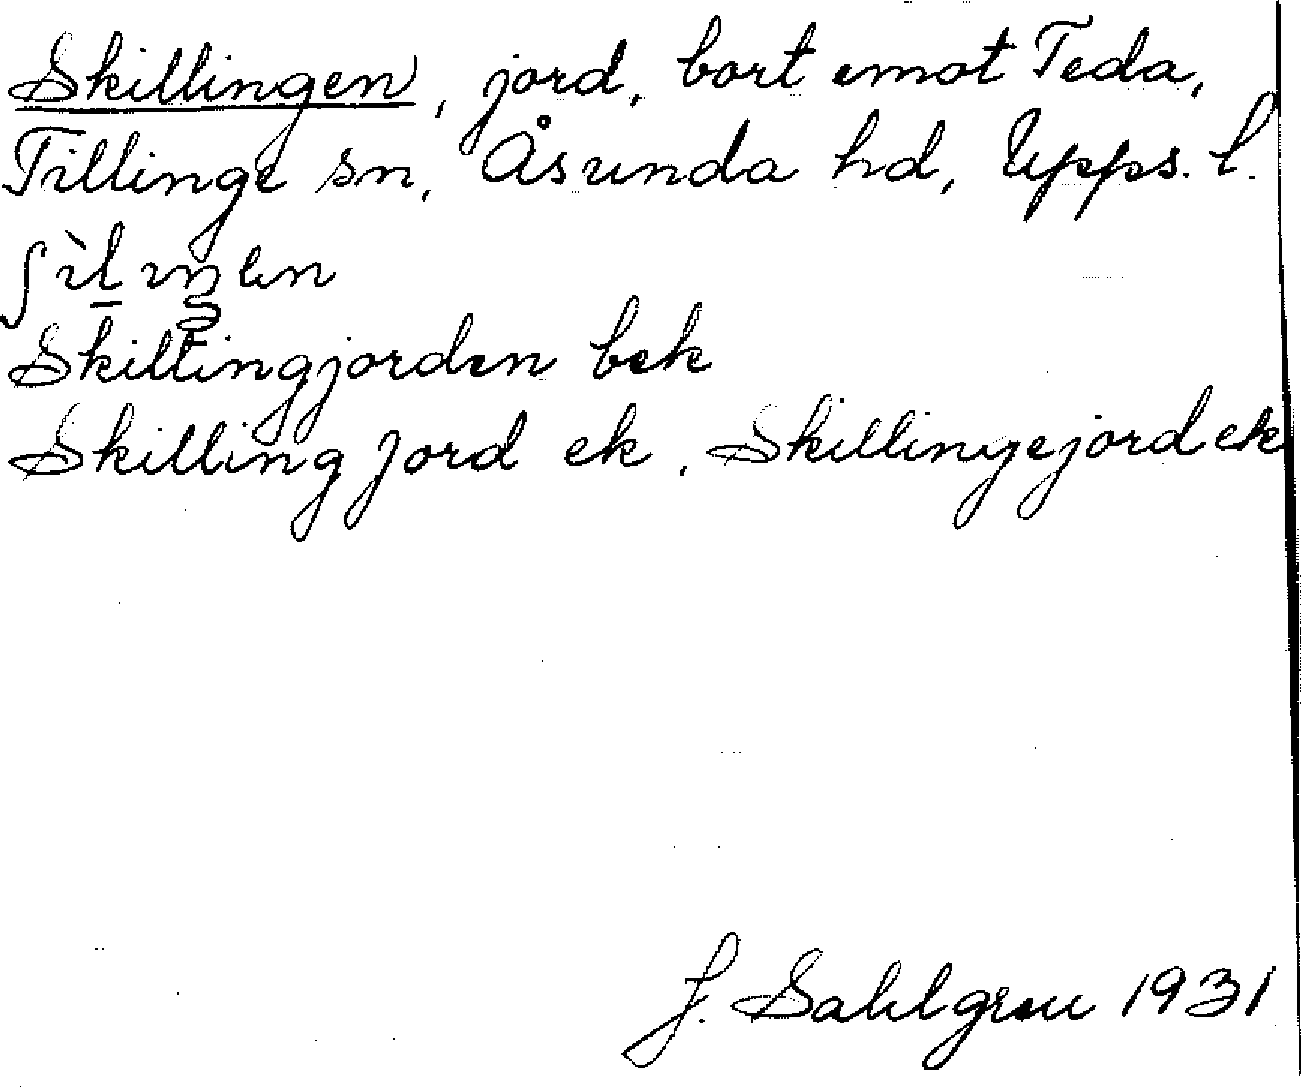 Skillingen, jord, bort emot Teda,
Tillinge sn, Åsunda hd, Upps. l.
Skillingjorden bek
Skilling Jord ek, Skillingejord ek
J. Sahlgren 1931